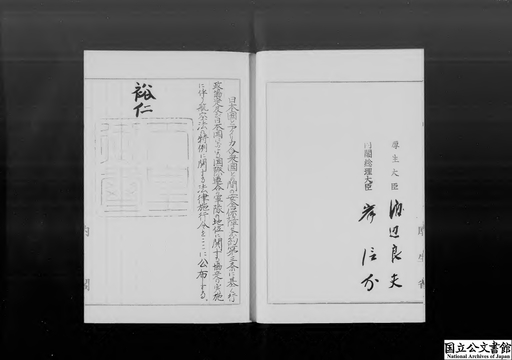 厚生大臣 渡辺良夫
内閣総理大臣 岸信介
日本国とアメリカ合衆国との間の安全保障条約第三条に基く行
政協定及び日本国における国際連合の軍隊の地位に関する協定の実施
に伴う薬事法の特例に関する法律施行令をここに公布する。
裕仁
天皇
御璽
内閣
国立公文書館
National Archives of Japan